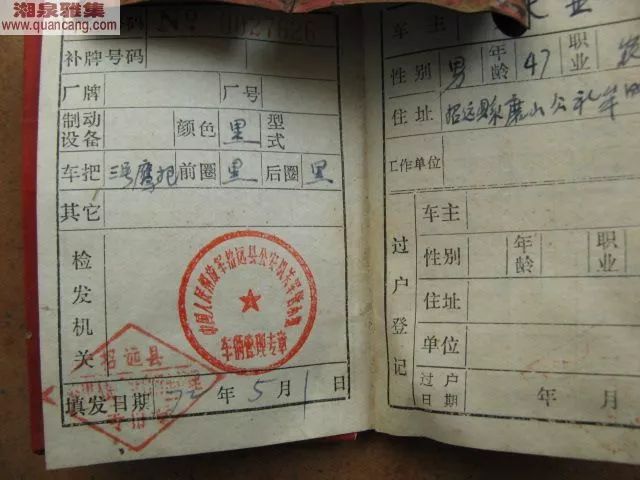 湘泉雅集
www.quancang.com
号码 No 0027626
补牌号码
厂牌 厂号
制动设备 颜色 黑 型式
车把 前圈 黑 后圈 黑
其它
检发机关
车辆管理专章
招远县
填发日期 72年5月1日
车主
性别 男 年龄 47 职业 农
住址 招远县 山公社
工作单位
过户登记
车主
性别 年龄 职业
住址
单位
过户日期 年 月